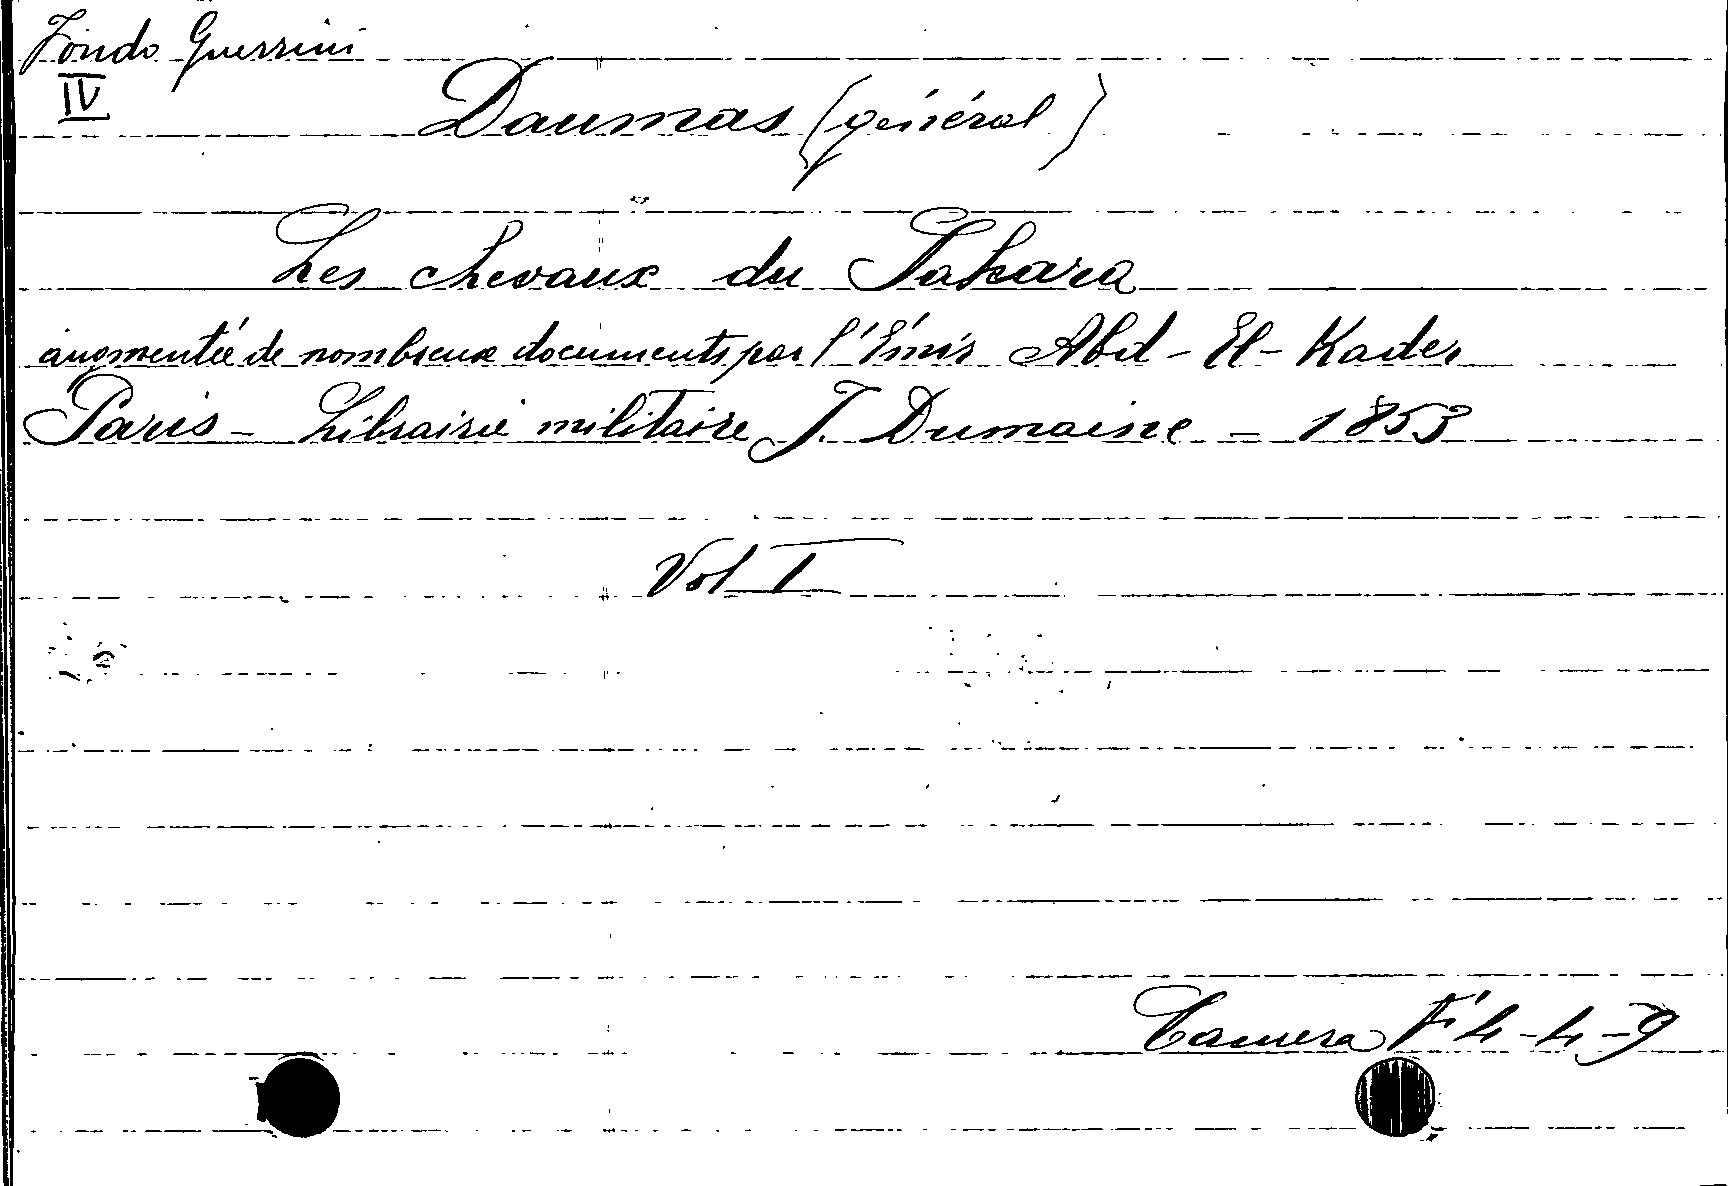 Fondo Guerrini
IV
Daumas (général)
Les chevaux du Sahara
augmentée de nombreux documents par l'Émir Abd-El-Kader
Paris - Librairie militaire J. Dumaine - 1853
Vol I
Camera F' 4-4-9